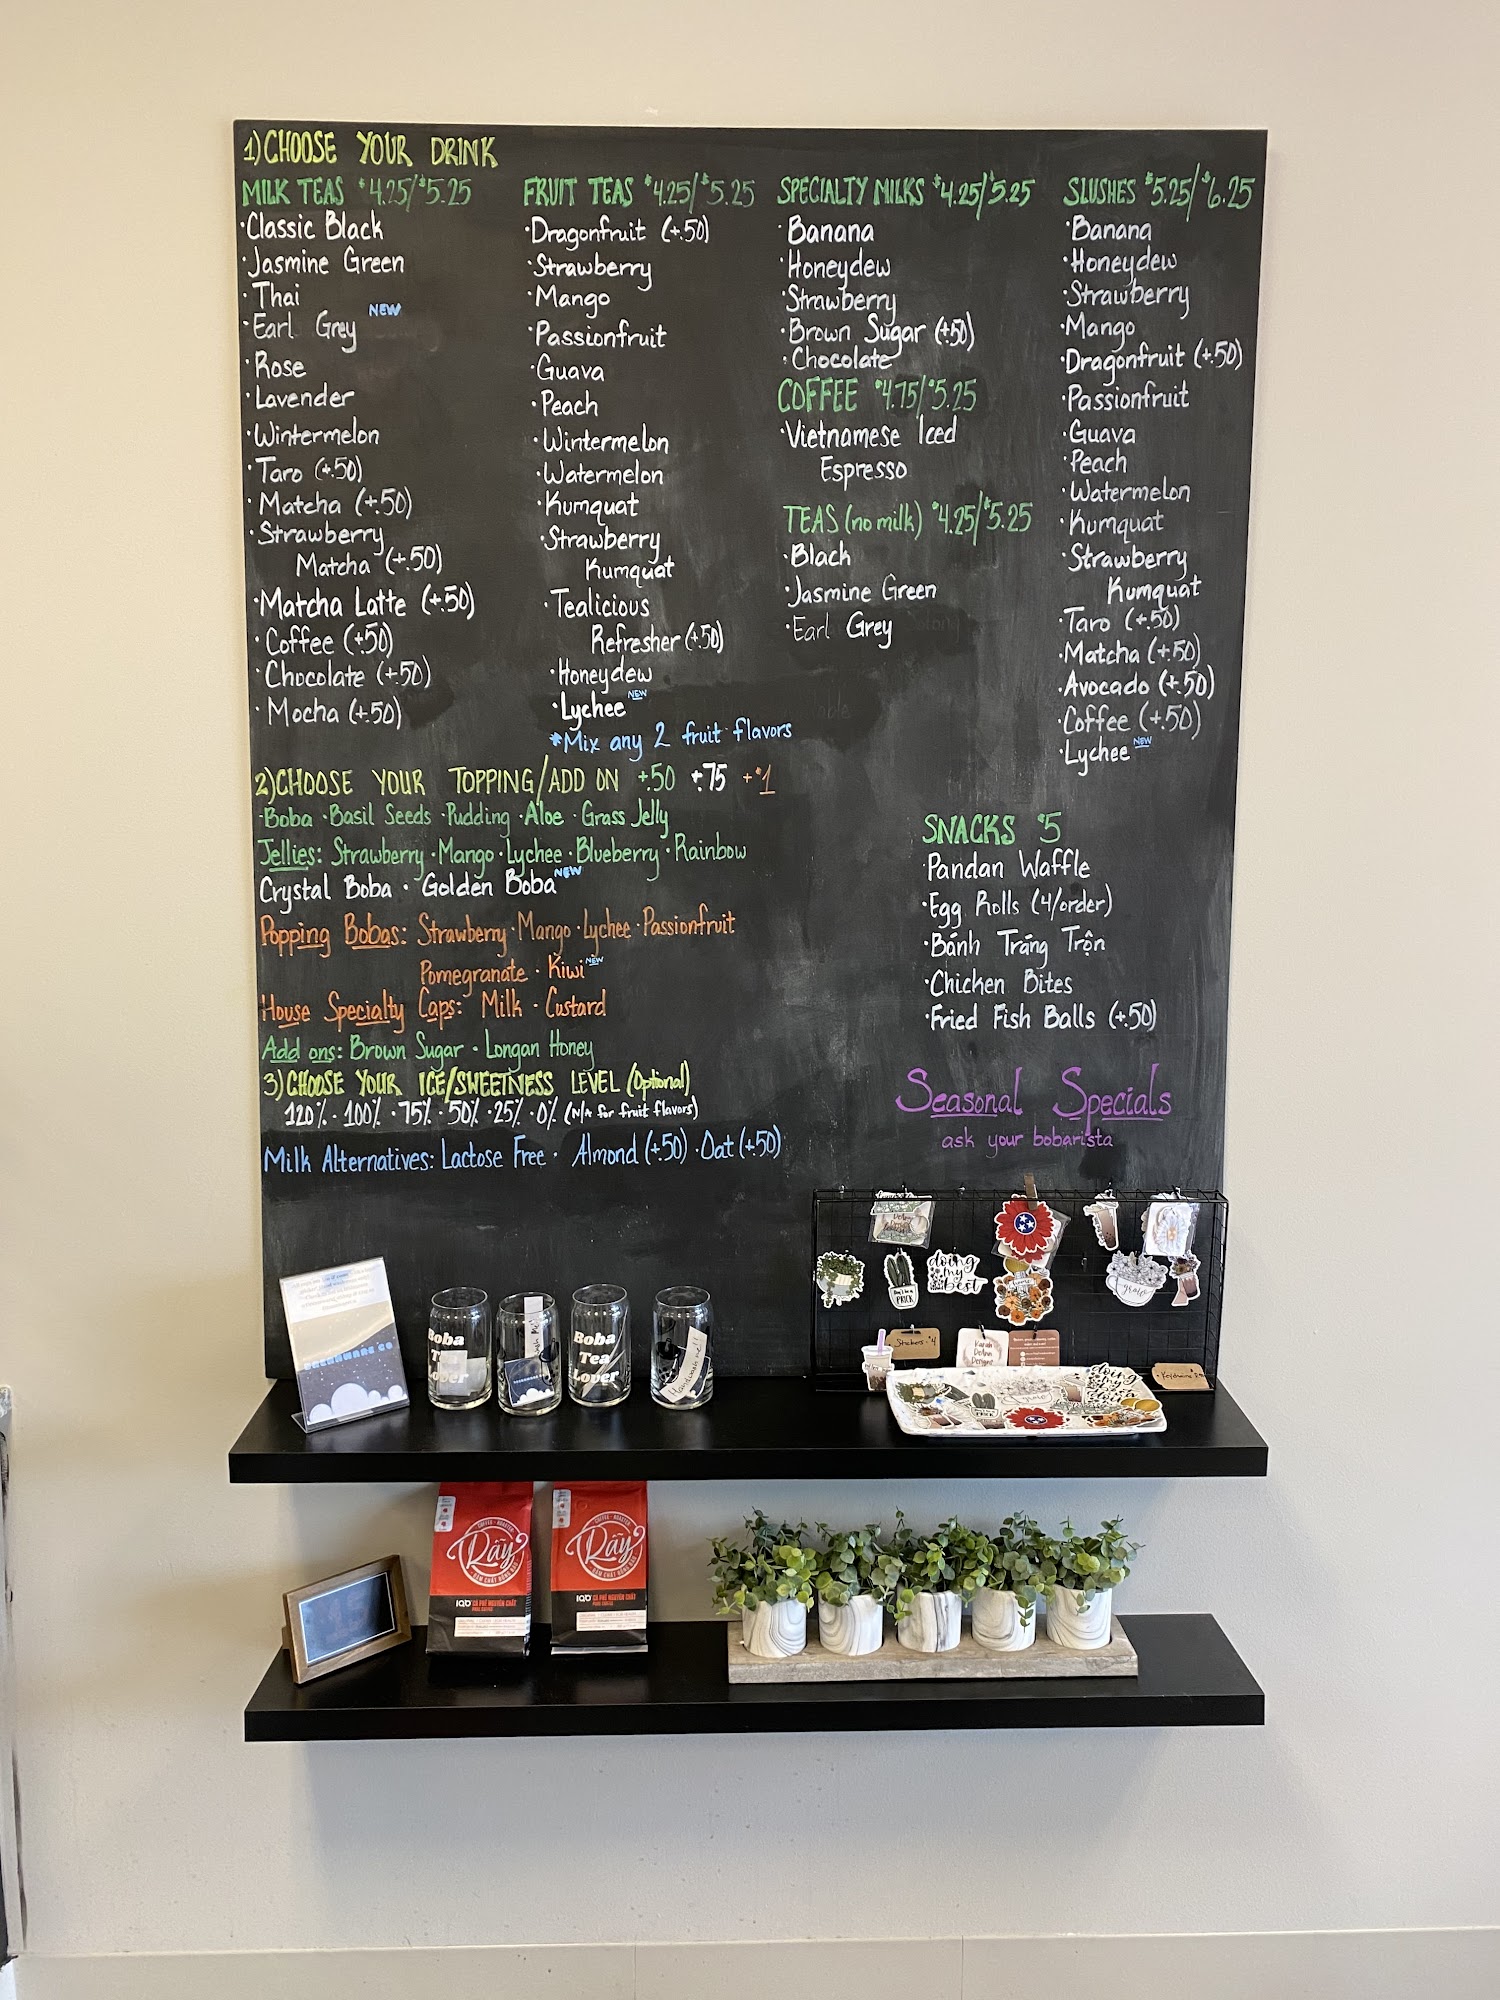 1) CHOOSE YOUR DRINK
MILK TEAS $4.25/$5.25
·Classic Black
·Jasmine Green
·Thai
·Earl Grey NEW
·Rose
·Lavender
·Wintermelon
·Taro (+.50)
·Matcha (+.50)
·Strawberry
Matcha (+.50)
·Matcha Latte (+.50)
·Coffee (+.50)
·Chocolate (+.50)
·Mocha (+.50)
FRUIT TEAS $4.25/$5.25
·Dragonfruit (+.50)
·Strawberry
·Mango
·Passionfruit
·Guava
·Peach
·Wintermelon
·Watermelon
·Kumquat
·Strawberry
Kumquat
·Tealicious
Refresher (+.50)
·Honeydew
·Lychee NEW
*Mix any 2 fruit flavors
SPECIALTY MILKS $4.25/$5.25
·Banana
·Honeydew
·Strawberry
·Brown Sugar (+.50)
·Chocolate
COFFEE $4.75/$5.25
·Vietnamese Iced
Espresso
TEAS (no milk) $4.25/$5.25
·Black
·Jasmine Green
·Earl Grey
SLUSHES $5.25/$6.25
·Banana
·Honeydew
·Strawberry
·Mango
·Dragonfruit (+.50)
·Passionfruit
·Guava
·Peach
·Watermelon
·Kumquat
·Strawberry
Kumquat
·Taro (+.50)
·Matcha (+.50)
·Avocado (+.50)
·Coffee (+.50)
·Lychee NEW
2) CHOOSE YOUR TOPPING/ADD ON +.50 +.75 +$1
·Boba ·Basil Seeds ·Pudding ·Aloe ·Grass Jelly
Jellies: Strawberry ·Mango ·Lychee ·Blueberry ·Rainbow
Crystal Boba · Golden Boba NEW
Popping Bobas: Strawberry ·Mango ·Lychee ·Passionfruit
Pomegranate · Kiwi NEW
House Specialty Caps: Milk · Custard
Add ons: Brown Sugar · Longan Honey
3) CHOOSE YOUR ICE/SWEETNESS LEVEL (Optional)
120% ·100% ·75% ·50% ·25% ·0% (N/A for fruit flavors)
Milk Alternatives: Lactose Free · Almond (+.50) ·Oat (+.50)
SNACKS $5
·Pandan Waffle
·Egg Rolls (4/order)
·Bánh Tráng Trộn
·Chicken Bites
·Fried Fish Balls (+.50)
Seasonal Specials
ask your bobarista
Boba
Tea
Lover
Boba
Tea
Lover
Handwash me!!
doing
my
best
Don't be a
PRICK
grow
Stickers - $4
Karah
DeAnn
Designs
COFFEE · ROASTER
Rãy
ĐẬM CHẤT RỪNG RẪY
CÀ PHÊ NGUYÊN CHẤT
PURE COFFEE
COFFEE · ROASTER
Rãy
CÀ PHÊ NGUYÊN CHẤT
PURE COFFEE